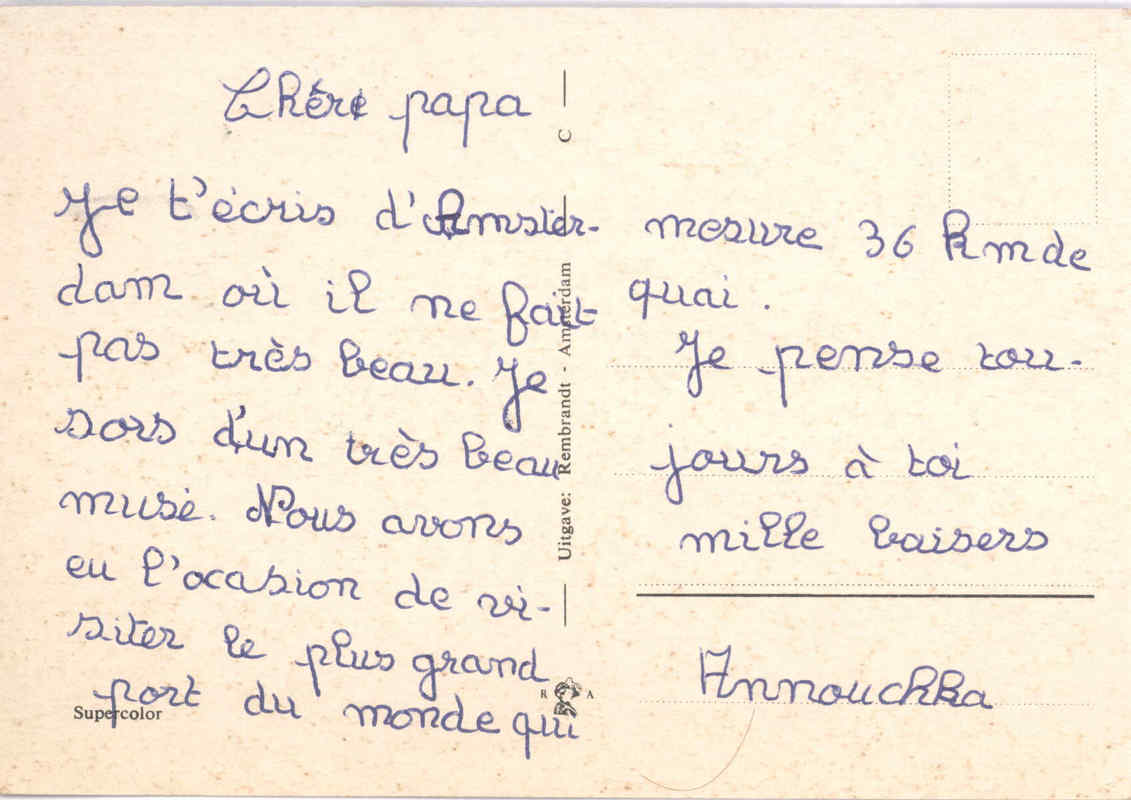 Chère papa
Je t'écris d'Amster-
dam où il ne fait
pas très beau. Je
sors d'un très beau
musé. Nous avons
eu l'ocasion de vi-
siter le plus grand
port du monde qui
mesure 36 km de
quai.
Je pense tou-
jours à toi
mille baisers
Annouchka
Supercolor
Uitgave: Rembrandt - Amsterdam
C
R A